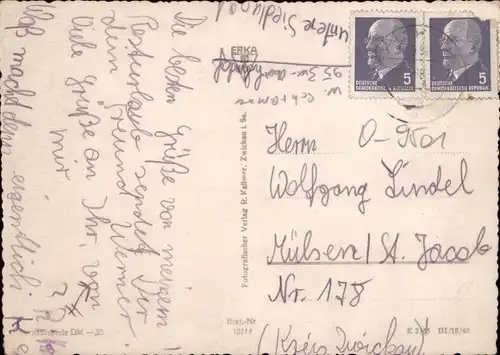 Die besten Grüße von meinem
Resturlaub sendet Dir
dein Freund Werner.
Viele Grüße an Ihr, von
mir
Was macht denn eigentlich
untere Siedlung
ERKA
W.
95 Zw-
Fotografischer Verlag R. Kallmer, Zwickau i. Sa.
5
DEUTSCHE
DEMOKRATISCHE REPUBLIK
5
DEUTSCHE
DEMOKRATISCHE REPUBLIK
Herrn O-9501
Wolfgang Lindel
Mülsen/St. Jacob
Nr. 178
(Kreis Zwickau)
Best.-Nr
DM -.25
III/18/45